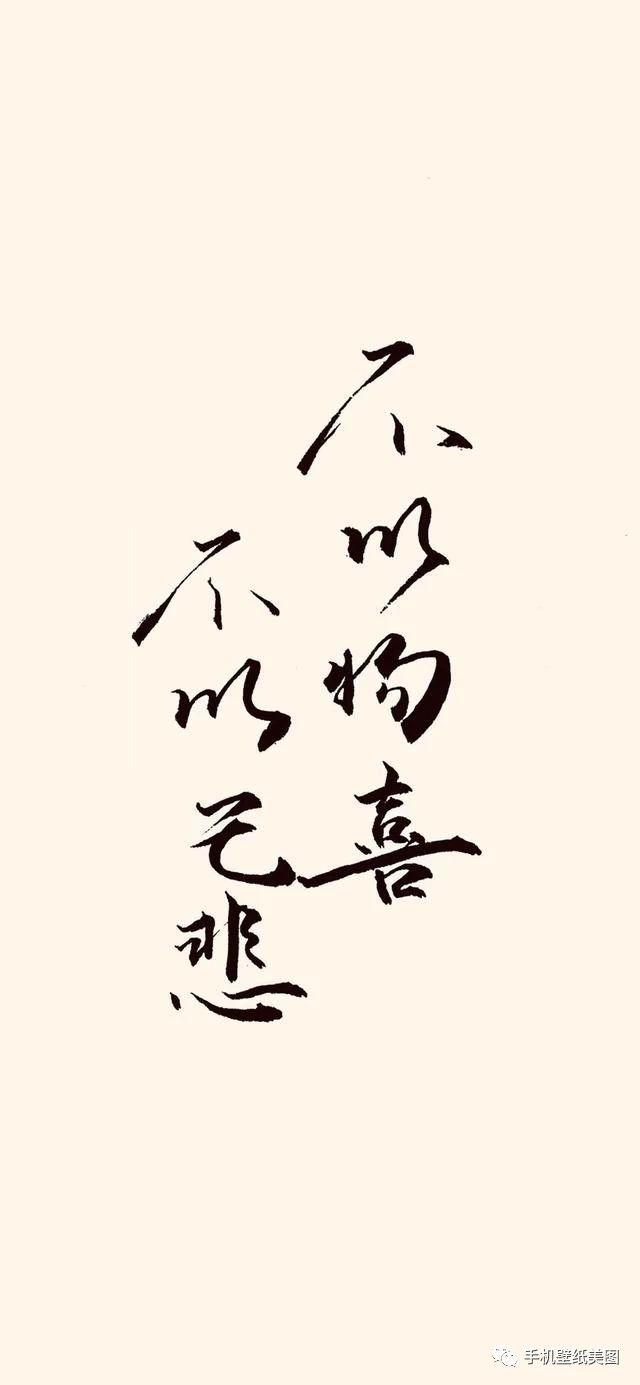 不以物喜
不以己悲
手机壁纸美图